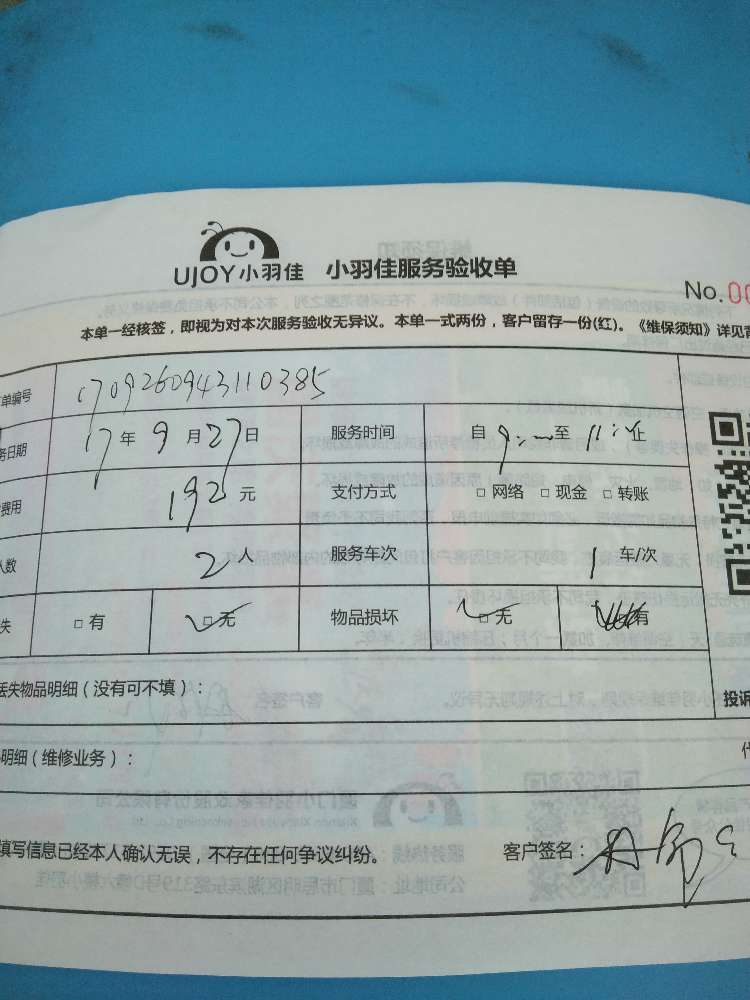 UJOY小羽佳 小羽佳服务验收单
No.00
本单一经核签，即视为对本次服务验收无异议。本单一式两份，客户留存一份(红)。《维保须知》详见背
单编号 1709260943110385
务日期 17年9月27日 服务时间 自9:至11:止
费用 192元 支付方式 □网络 □现金 □转账
人数 2人 服务车次 1车/次
失 □有 □无 物品损坏 □无 □有
丢失物品明细（没有可不填）：
投诉
明细（维修业务）：
填写信息已经本人确认无误，不存在任何争议纠纷。 客户签名：